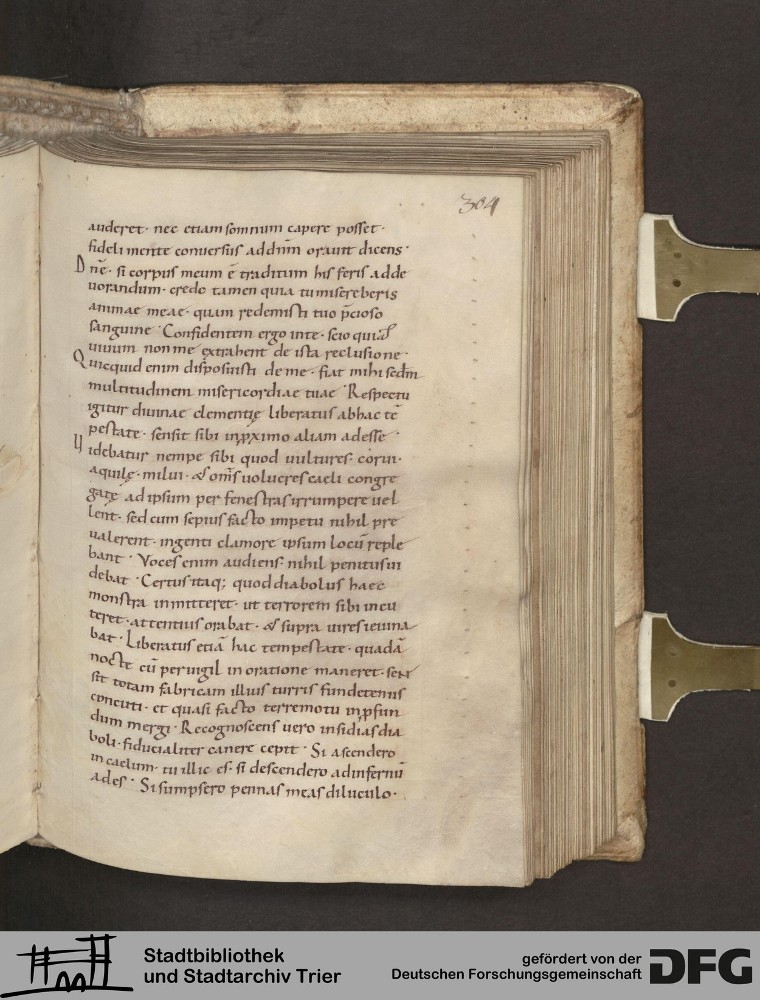 304
auderet· nec etiam somnum capere posset·
fideli mente conversus ad dn̄m oravit dicens·
Dn̄e· si corpus meum ē traditum his feris adde
vorandum· credo tamen quia tu misereberis
animae meae· quam redemisti tuo p̄cioso
sanguine· Confidentem ergo in te· scio quia
vivum non me extrahent de ista reclusione·
Quicquid enim disposuisti de me· fiat mihi secdm̄
multitudinem misericordiae tuae· Respectu
igitur divinae clementię liberatus ab hac tē
pestate· sensit sibi in ꝓximo aliam adesse·
Videbatur nempe sibi quod vultures· corvi·
aquilę· milvi· & om̄s volucres caeli congre
gatę ad ipsum per fenestras irrumpere vel
lent· sed cum sepius facto impetu nihil pre
valerent· ingenti clamore ipsum locū reple
bant· Voces enim audiens· nihil penitus vi
debat· Certus itaq; quod diabolus haec
monstra inmitteret· ut terrorem sibi incu
teret· attentius orabat· & supra vires ieiuna
bat· Liberatus etiā hac tempestate· quadā
nocte cū pervigil in oratione maneret· sen
sit totam fabricam illius turris funditus
concuti· et quasi facto terremotu in ꝓfun
dum mergi· Recognoscens vero insidias dia
boli· fiducialiter canere cepit· Si ascendero
in caelum· tu illic es· si descendero ad infernū
ades· Si sumpsero pennas meas diluculo·
Stadtbibliothek
und Stadtarchiv Trier
gefördert von der
Deutschen Forschungsgemeinschaft
DFG